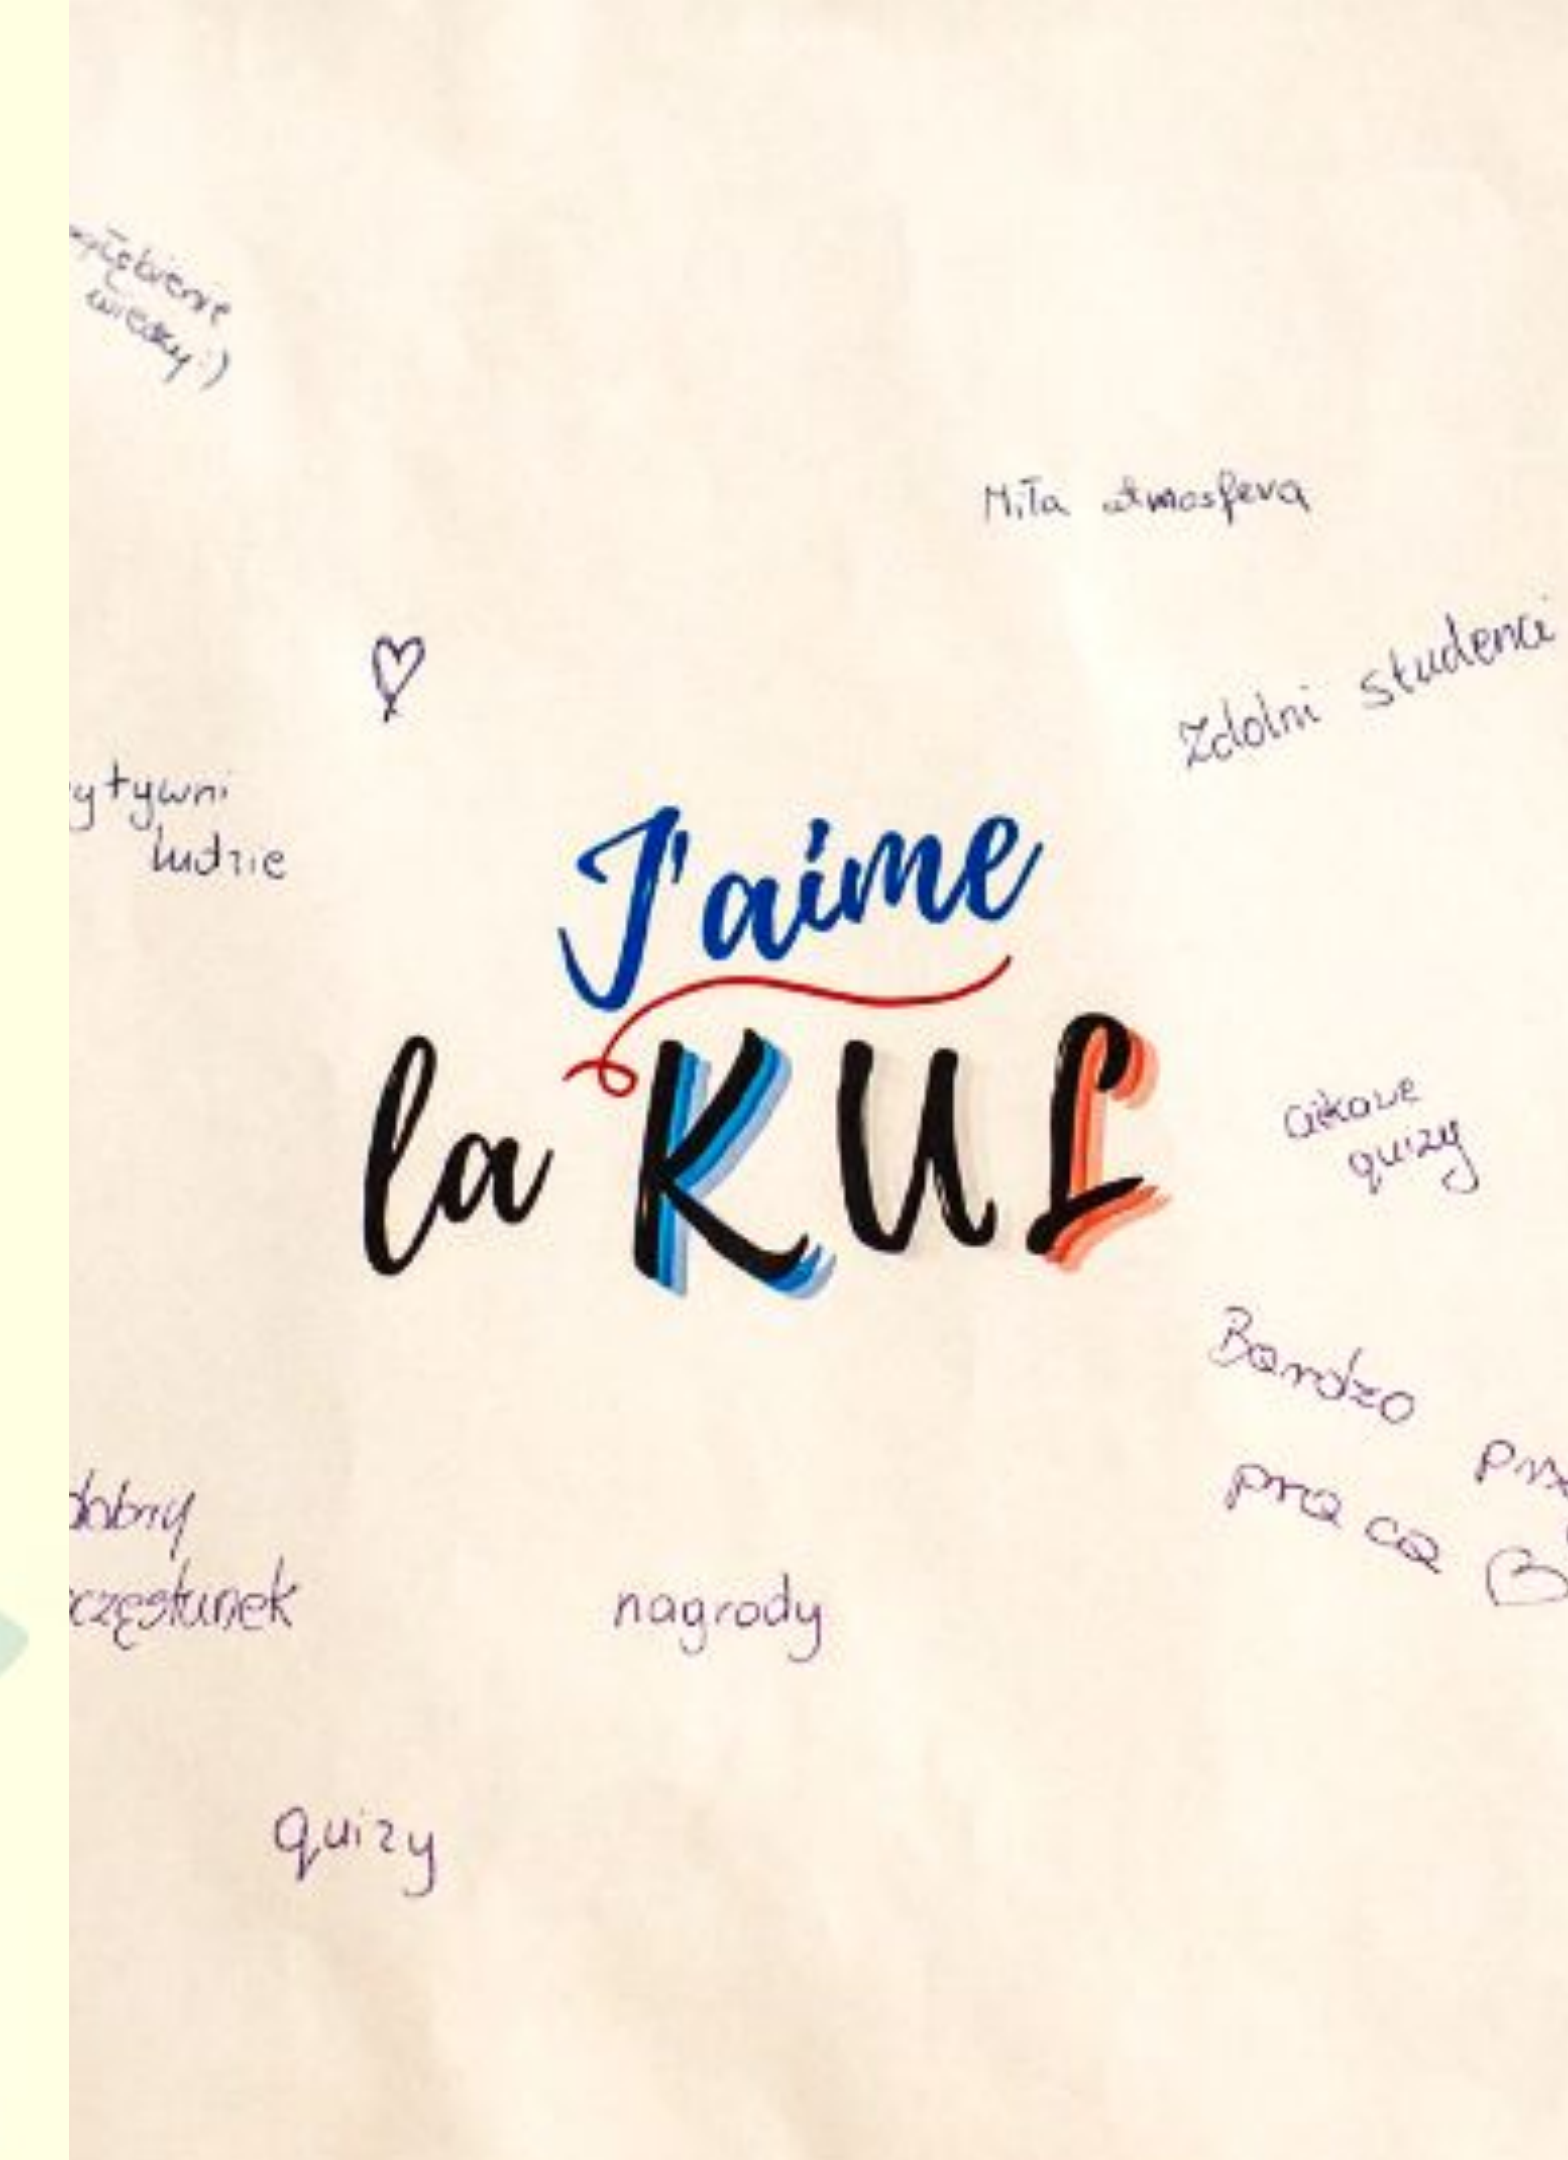 wiedzy :)
Miła atmosfera
Zdolni studenci
ytywni
ludzie
J'aime
la KUL
ciekawe
quizy
Bardzo
praca
dobry
częstunek
nagrody
quizy